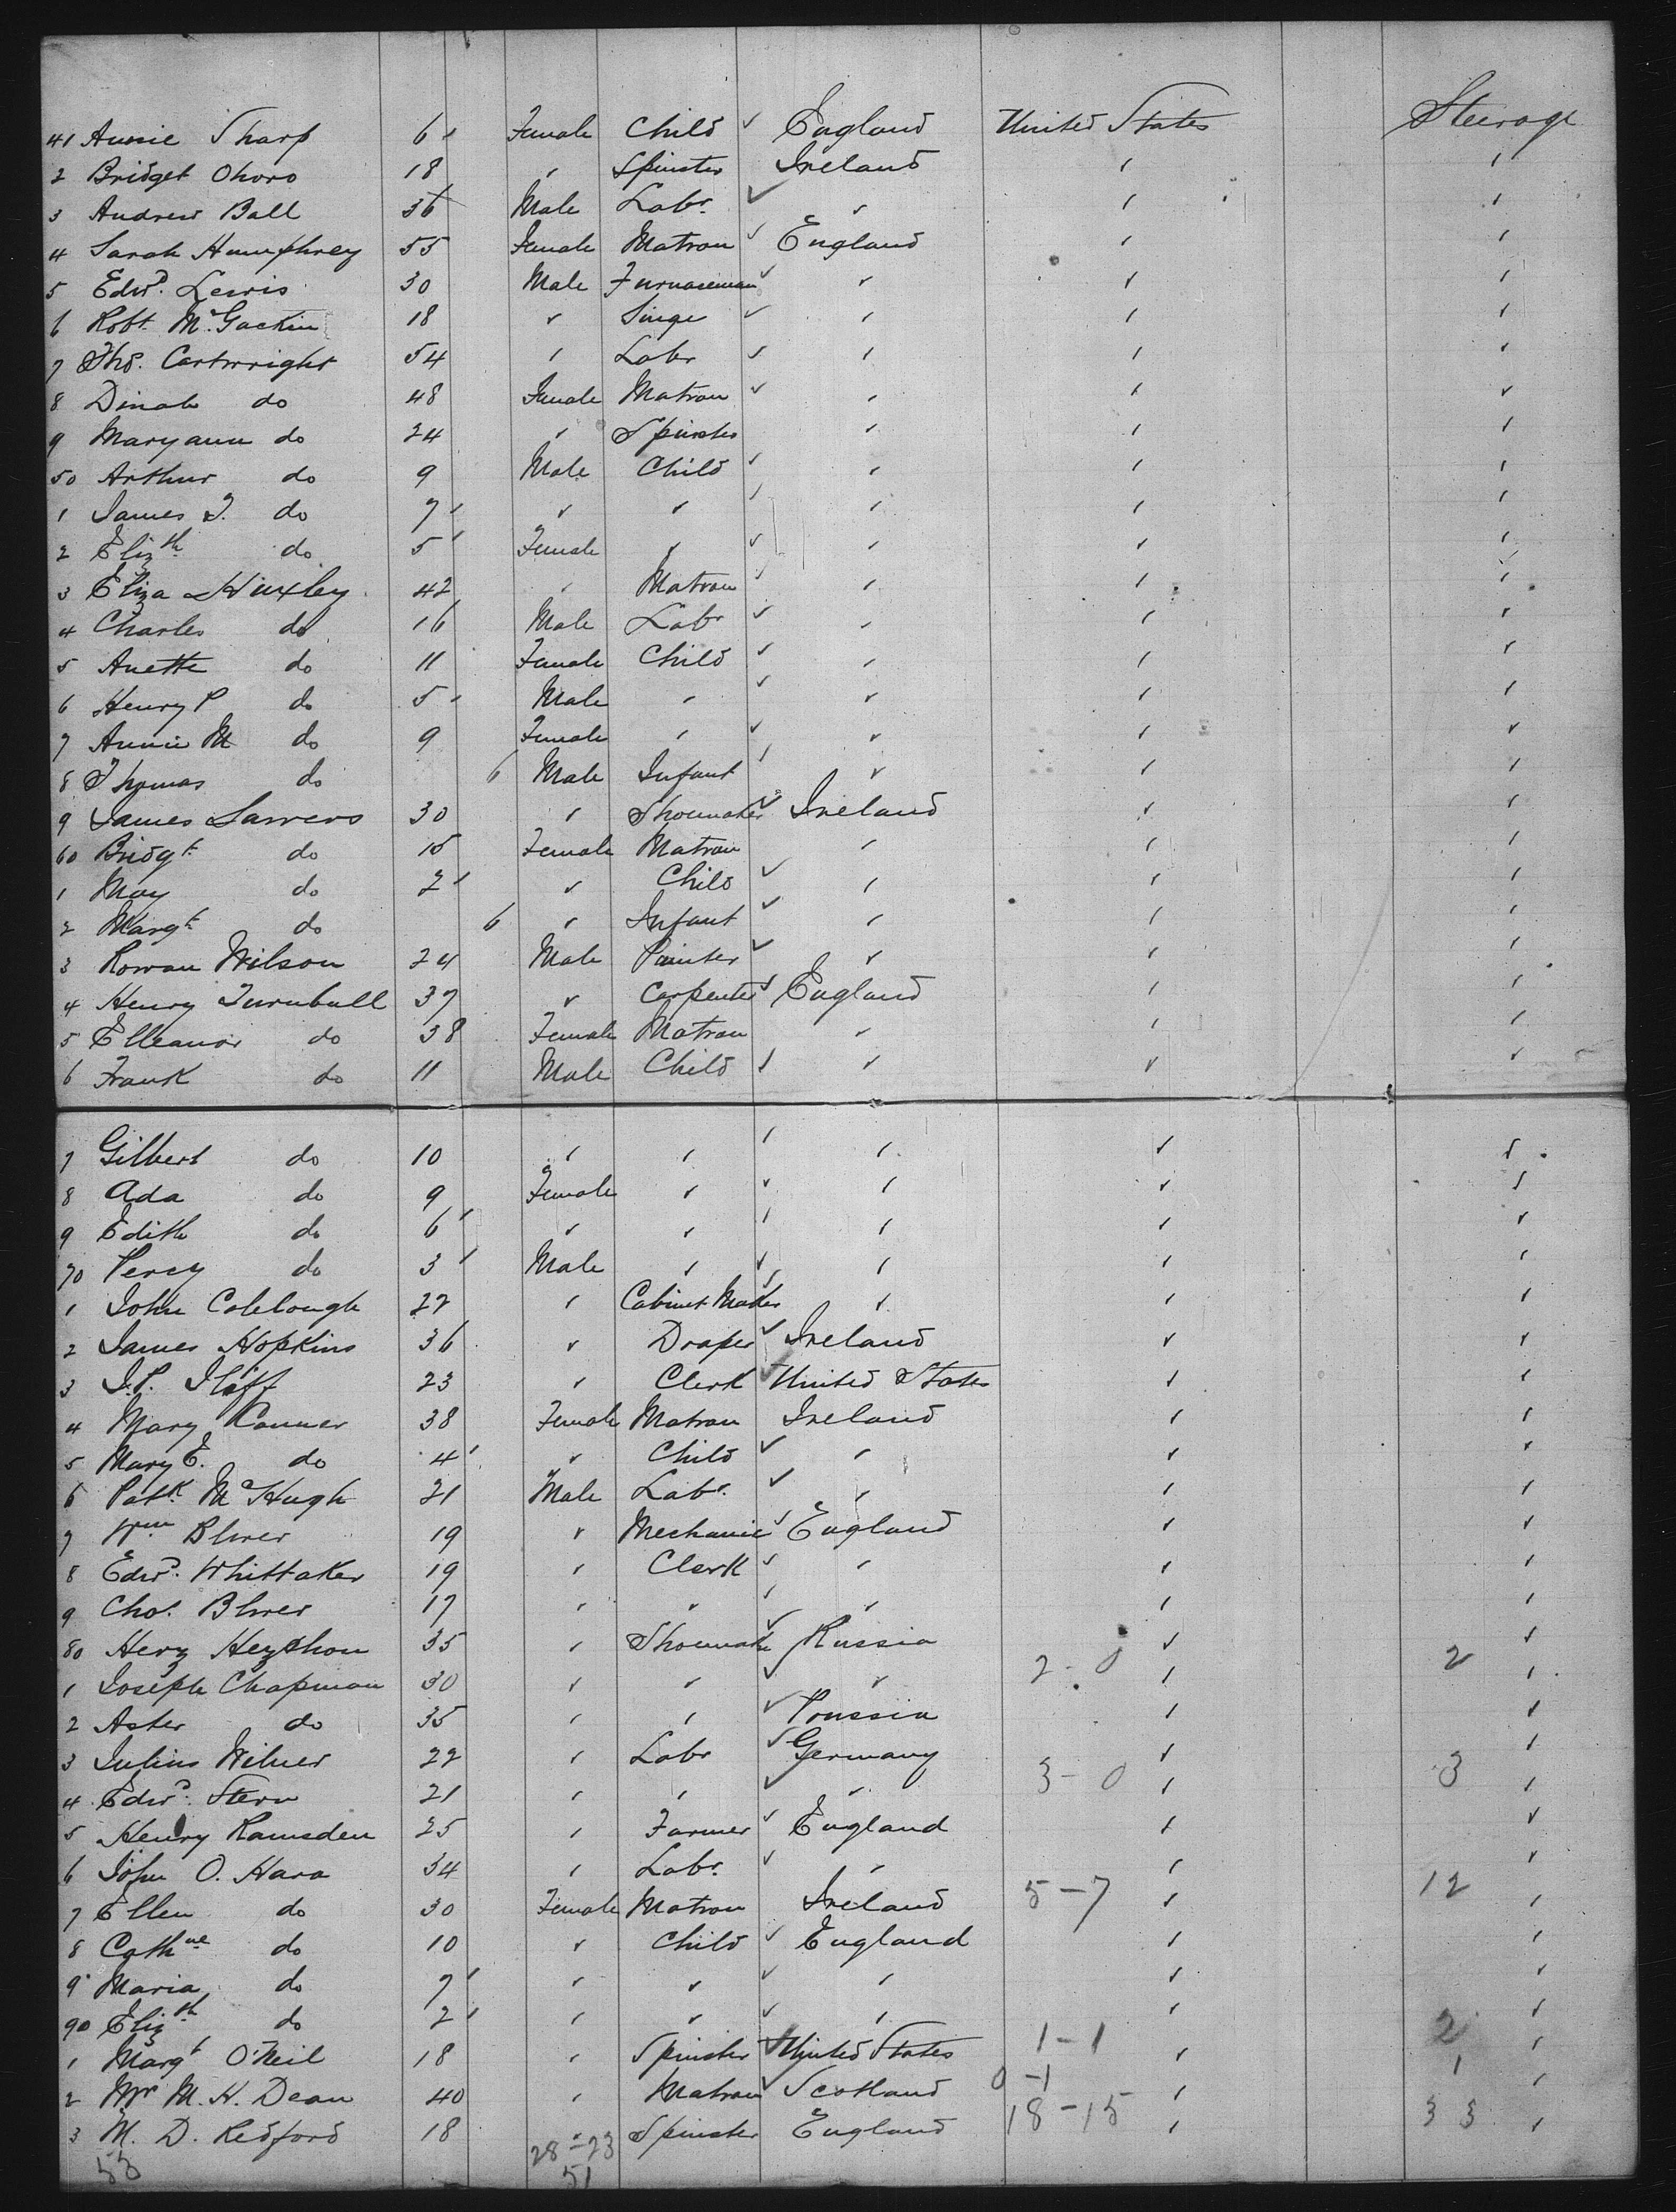 41 Annie Sharp 6 Female Child England United States Steerage
2 Bridget Ohoro 18 " Spinster Ireland " "
3 Andrew Ball 36 Male Labr. " " "
4 Sarah Humphrey 55 Female Matron England " "
5 Edwd. Lewis 30 Male Furnaceman " " "
6 Robt. McGackin 18 " " " "
7 Tho's. Cartwright 54 " Labr " " "
8 Dinah do 48 Female Matron " " "
9 Maryann do 24 " Spinster " " "
50 Arthur do 9 Male Child " " "
1 James T. do 7 " " " " "
2 Elizth do 5 Female " " " "
3 Eliza Huxley 42 " Matron " " "
4 Charles do 16 Male Labr " " "
5 Anette do 11 Female Child " " "
6 Henry P do 5 Male " " " "
7 Annie M do 9 Female " " " "
8 Thomas do 6 Male Infant " " "
9 James 30 " Shoemaker Ireland " "
60 Bridgt do 15 Female Matron " " "
1 May do 2 " Child " " "
2 Margt do 6 " Infant " " "
3 Rowan Wilson 24 Male Painter " " "
4 Henry Turnbull 37 " Carpenter England " "
5 Elleanor do 38 Female Matron " " "
6 Frank do 11 Male Child " " "
7 Gilbert do 10 " " " " "
8 Ada do 9 Female " " " "
9 Edith do 6 " " " " "
70 Percy do 3 Male " " " "
1 John Colclough 22 " Cabinet Maker " " "
2 James Hopkins 36 " Draper Ireland " "
3 J.P. 23 " Clerk United States " "
4 Mary Conner 38 Female Matron Ireland " "
5 Mary E. do 4 " Child " " "
6 Patk. McHugh 21 Male Labr. " " "
7 Wm Blwer 19 " Mechanic England " "
8 Edwd. Whittaker 19 " Clerk " " "
9 Cha's. Blwer 17 " " " " "
80 Herz 35 " Shoemaker Russia " "
1 Joseph Chapman 30 " " " 2-0 " 2 "
2 Aster do 35 " " Prussia " "
3 Julius Wilner 22 " Labr Germany " "
4 Edwd. Stern 21 " " " 3-0 " 3 "
5 Henry Ramsden 25 " Farmer England " "
6 John O. Hara 34 " Labr. " " "
7 Ellen do 30 Female Matron Ireland 5-7 " 12 "
8 Cathne do 10 " Child England " "
9 Maria do 7 " " " " "
90 Elizth do 2 " " " " "
1 Margt O'Neil 18 " Spinster United States 1-1 " 2 "
2 Mrs M. H. Dean 40 " Matron Scotland 0-1 " 1 "
3 M. D. Redford 18 " Spinster England 18-15 " 33 "
53 28-23
51